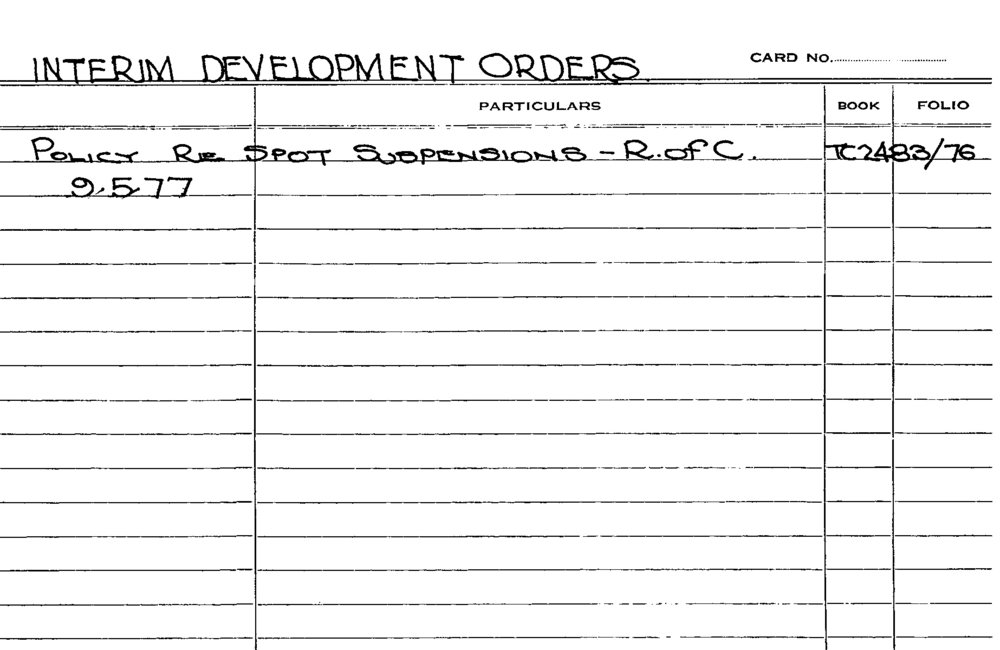 INTERIM DEVELOPMENT ORDERS.
CARD NO.
PARTICULARS BOOK FOLIO
POLICY RE SPOT SUSPENSIONS - R. of C. TC2483/76
9.5.77